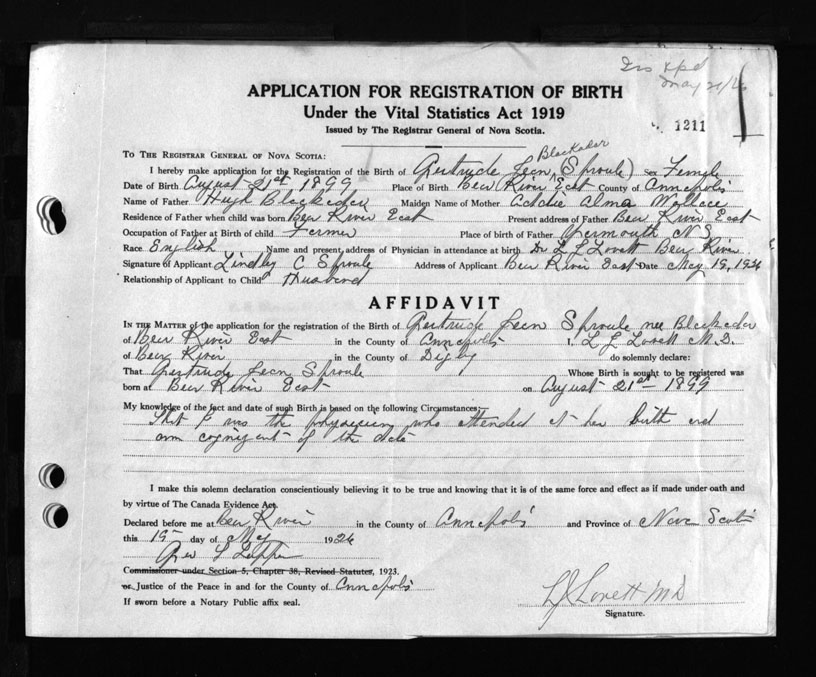 May 21/26
APPLICATION FOR REGISTRATION OF BIRTH
Under the Vital Statistics Act 1919
Issued by The Registrar General of Nova Scotia.
1211
TO THE REGISTRAR GENERAL OF NOVA SCOTIA:
Blackader
I hereby make application for the Registration of the Birth of Gertrude Jean (Sproule) Sex Female
Date of Birth August 21st, 1899 Place of Birth Bear River East County of Annapolis
Name of Father Hugh Blackader Maiden Name of Mother Addie Alma Wallace
Residence of Father when child was born Bear River East Present address of Father Bear River East
Occupation of Father at Birth of child Farmer Place of birth of Father Yarmouth N.S.
Race English Name and present address of Physician in attendance at birth Dr L J Lovett Bear River
Signature of Applicant Lindley C Sproule Address of Applicant Bear River East Date May 19, 1926
Relationship of Applicant to Child Husband
AFFIDAVIT
IN THE MATTER of the application for the registration of the Birth of Gertrude Jean Sproule nee Blackader
of Bear River East in the County of Annapolis I, L J Lovett M.D.
of Bear River in the County of Digby do solemnly declare:
That Gertrude Jean Sproule Whose Birth is sought to be registered was
born at Bear River East on August 21st 1899
My knowledge of the fact and date of such Birth is based on the following Circumstances:
That I was the physician who attended at her birth and
am cognizant of the date
I make this solemn declaration conscientiously believing it to be true and knowing that it is of the same force and effect as if made under oath and
by virtue of The Canada Evidence Act.
Declared before me at Bear River in the County of Annapolis and Province of Nova Scotia
this 19 day of May 1926
Commissioner under Section 5, Chapter 38, Revised Statutes, 1923.
or Justice of the Peace in and for the County of Annapolis
If sworn before a Notary Public affix seal.
L J Lovett M D
Signature.